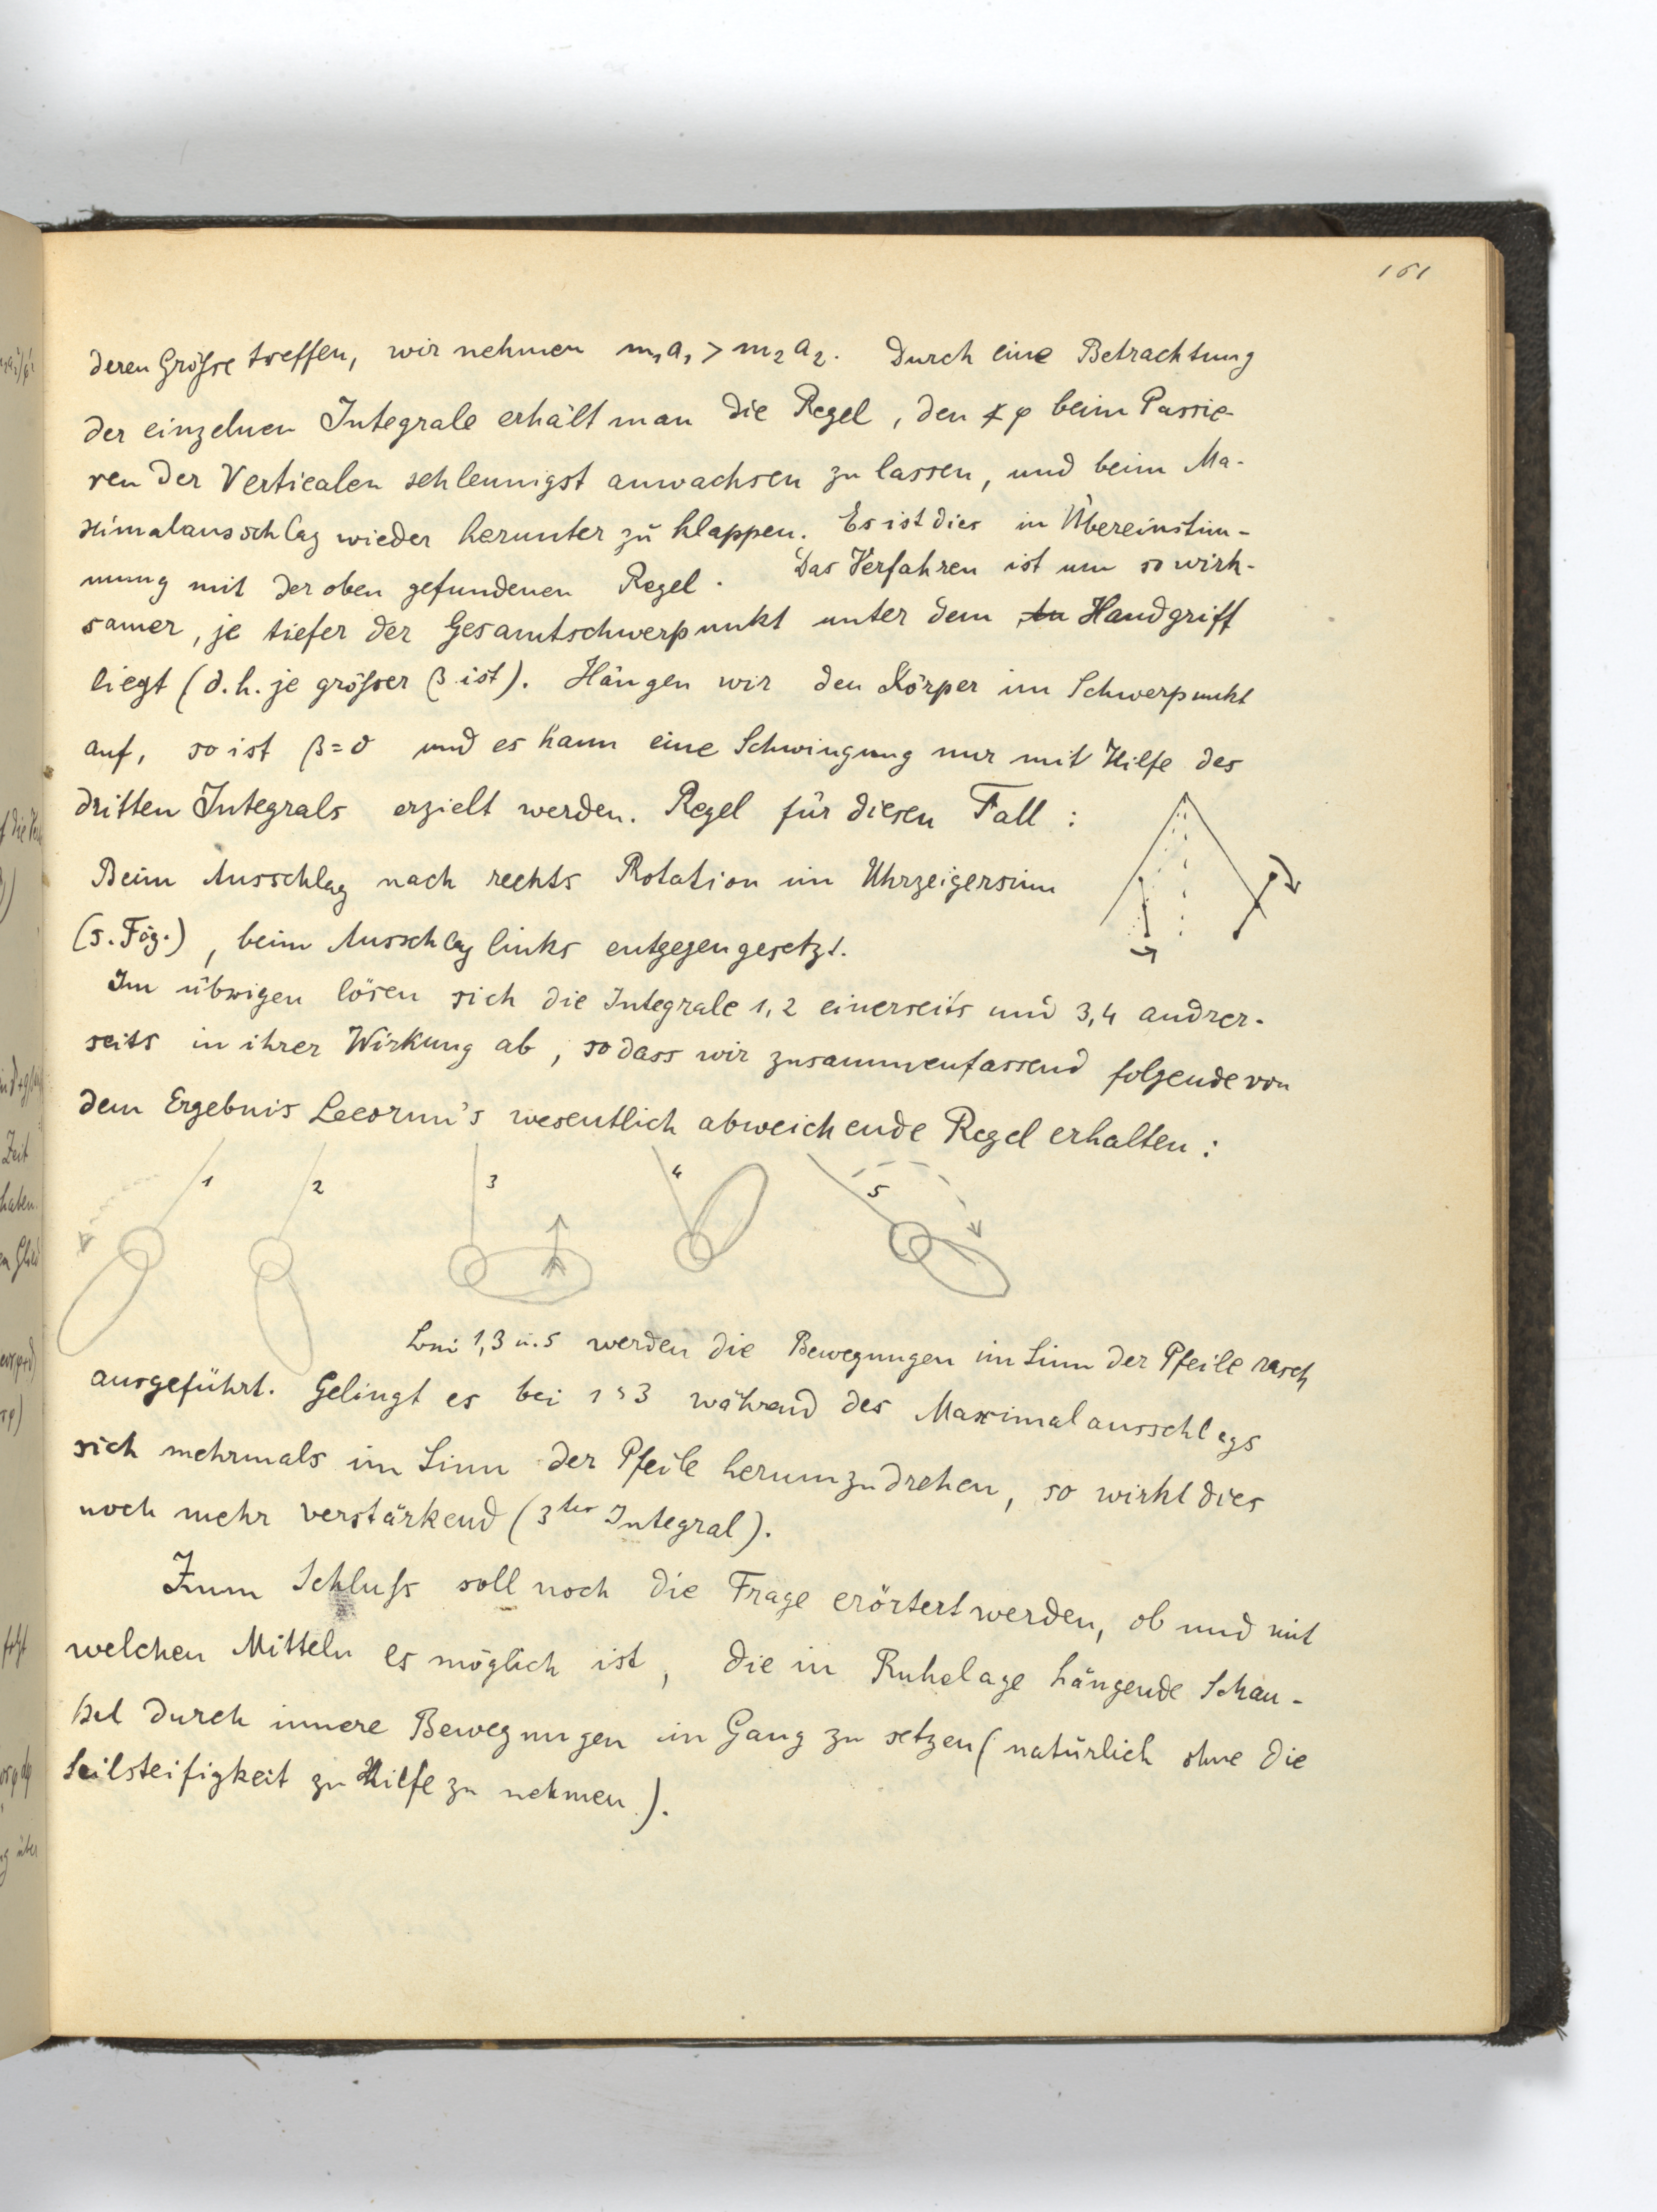 161
deren Größe treffen, wir nehmen m₁a₁ > m₂a₂. Durch eine Betrachtung
der einzelnen Integrale erhält man die Regel, den ∢φ beim Passie-
ren der Verticalen schleunigst anwachsen zu lassen, und beim Ma-
ximalausschlag wieder herunter zu klappen. Es ist dies in Übereinstim-
mung mit der oben gefundenen Regel. Das Verfahren ist um so wirk-
samer, je tiefer der Gesamtschwerpunkt unter dem Handgriff
liegt (d.h. je größer β ist). Hängen wir den Körper im Schwerpunkt
auf, so ist β=0 und es kann eine Schwingung nur mit Hilfe des
dritten Integrals erzielt werden. Regel für diesen Fall:
Beim Ausschlag nach rechts Rotation im Uhrzeigersinn
(s. Fig.), beim Ausschlag links entgegengesetzt.
Im übrigen lösen sich die Integrale 1,2 einerseits und 3,4 andrer-
seits in ihrer Wirkung ab, sodass wir zusammenfassend folgende von
dem Ergebnis Lecornu's wesentlich abweichende Regel erhalten:
1 2 3 4 5
1,3 u. 5 werden die Bewegungen im Sinn der Pfeile rasch
ausgeführt. Gelingt es bei 1 3 während des Maximalausschlags
sich mehrmals im Sinn der Pfeile herumzudrehen, so wirkt dies
noch mehr verstärkend (3tes Integral).
Zum Schluß soll noch die Frage erörtert werden, ob und mit
welchen Mitteln es möglich ist, die in Ruhelage hängende Schau-
kel durch innere Bewegungen in Gang zu setzen (natürlich ohne die
Seilsteifigkeit zu Hilfe zu nehmen).